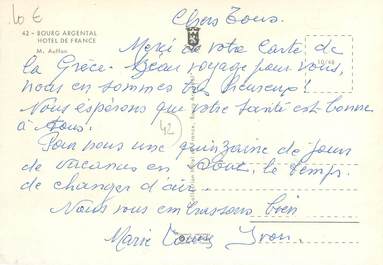 10 €
42 - BOURG ARGENTAL
HOTEL DE FRANCE
M. Autton
Chers Tous.
Merci de votre Carte de
la Grèce. Beau voyage pour vous,
nous en sommes très heureux!
Nous espérons que votre santé est bonne
à tous.
Pour nous une quinzaine de jours
de vacances en Août, le temps
de changer d'air.
Nous vous embrassons bien
Marie Louise Yvon.
42
10/48